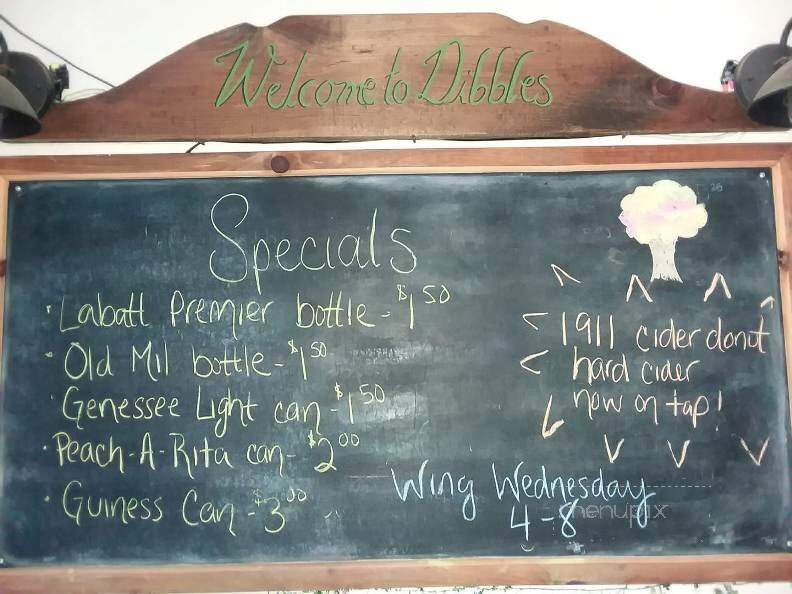 Welcome to Dibbles
Specials
· Labatt Premier bottle - $1 50
· Old Mil bottle - $1 50
Genessee Light can - $1 50
· Peach-A-Rita can - $2 00
· Guiness Can - $3 00
1911 cider donut
hard cider
now on tap!
Wing Wednesday
4-8
menupix